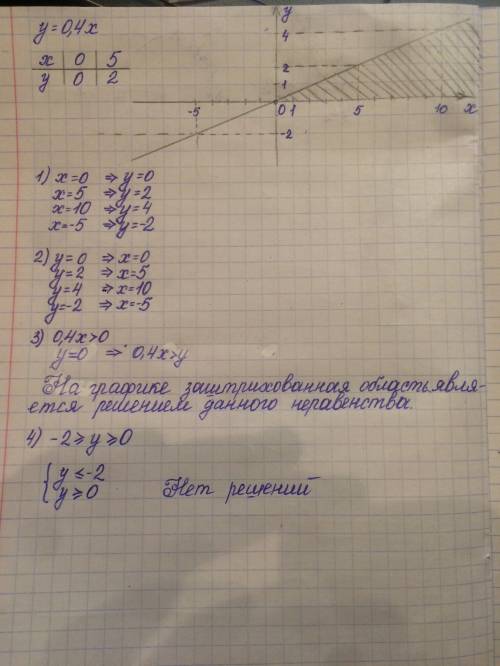 y=0,4x
x 0 5
y 0 2
y
4
2
1
-5 0 1 5 10 x
-2
1) x=0 ⇒ y=0
x=5 ⇒ y=2
x=10 ⇒ y=4
x=-5 ⇒ y=-2
2) y=0 ⇒ x=0
y=2 ⇒ x=5
y=4 ⇒ x=10
y=-2 ⇒ x=-5
3) 0,4x>0
y=0 ⇒ 0,4x>y
На графике заштрихованная область явля-
ется решением данного неравенства.
4) -2⩾y⩾0
{ y⩽-2
y⩾0 Нет решений